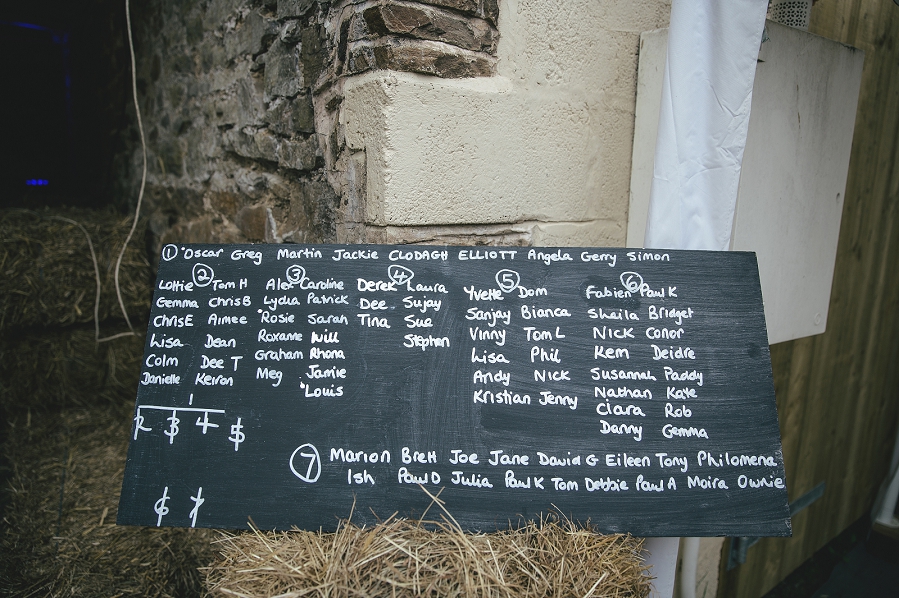 ① *Oscar Greg Martin Jackie CLODAGH ELLIOTT Angela Gerry Simon
②
Lottie Tom H
Gemma Chris B
Chris E Aimee
Lisa Dean
Colm Dee T
Danielle Keiron
③
Alex Caroline
Lydia Patrick
*Rosie Sarah
Roxanne Will
Graham Rhona
Meg Jamie
*Louis
④
Derek Laura
Dee Sujay
Tina Sue
Stephen
⑤
Yvette Dom
Sanjay Bianca
Vinny Tom L
Lisa Phil
Andy Nick
Kristian Jenny
⑥
Fabien Paul K
Sheila Bridget
Nick Conor
Kem Deidre
Susannah Paddy
Nathan Kate
Ciara Rob
Danny Gemma
1
2 3 4 5
6 7
⑦ Marion Brett Joe Jane David G Eileen Tony Philomena
Ish Paul D Julia Paul K Tom Debbie Paul A Moira Ownie